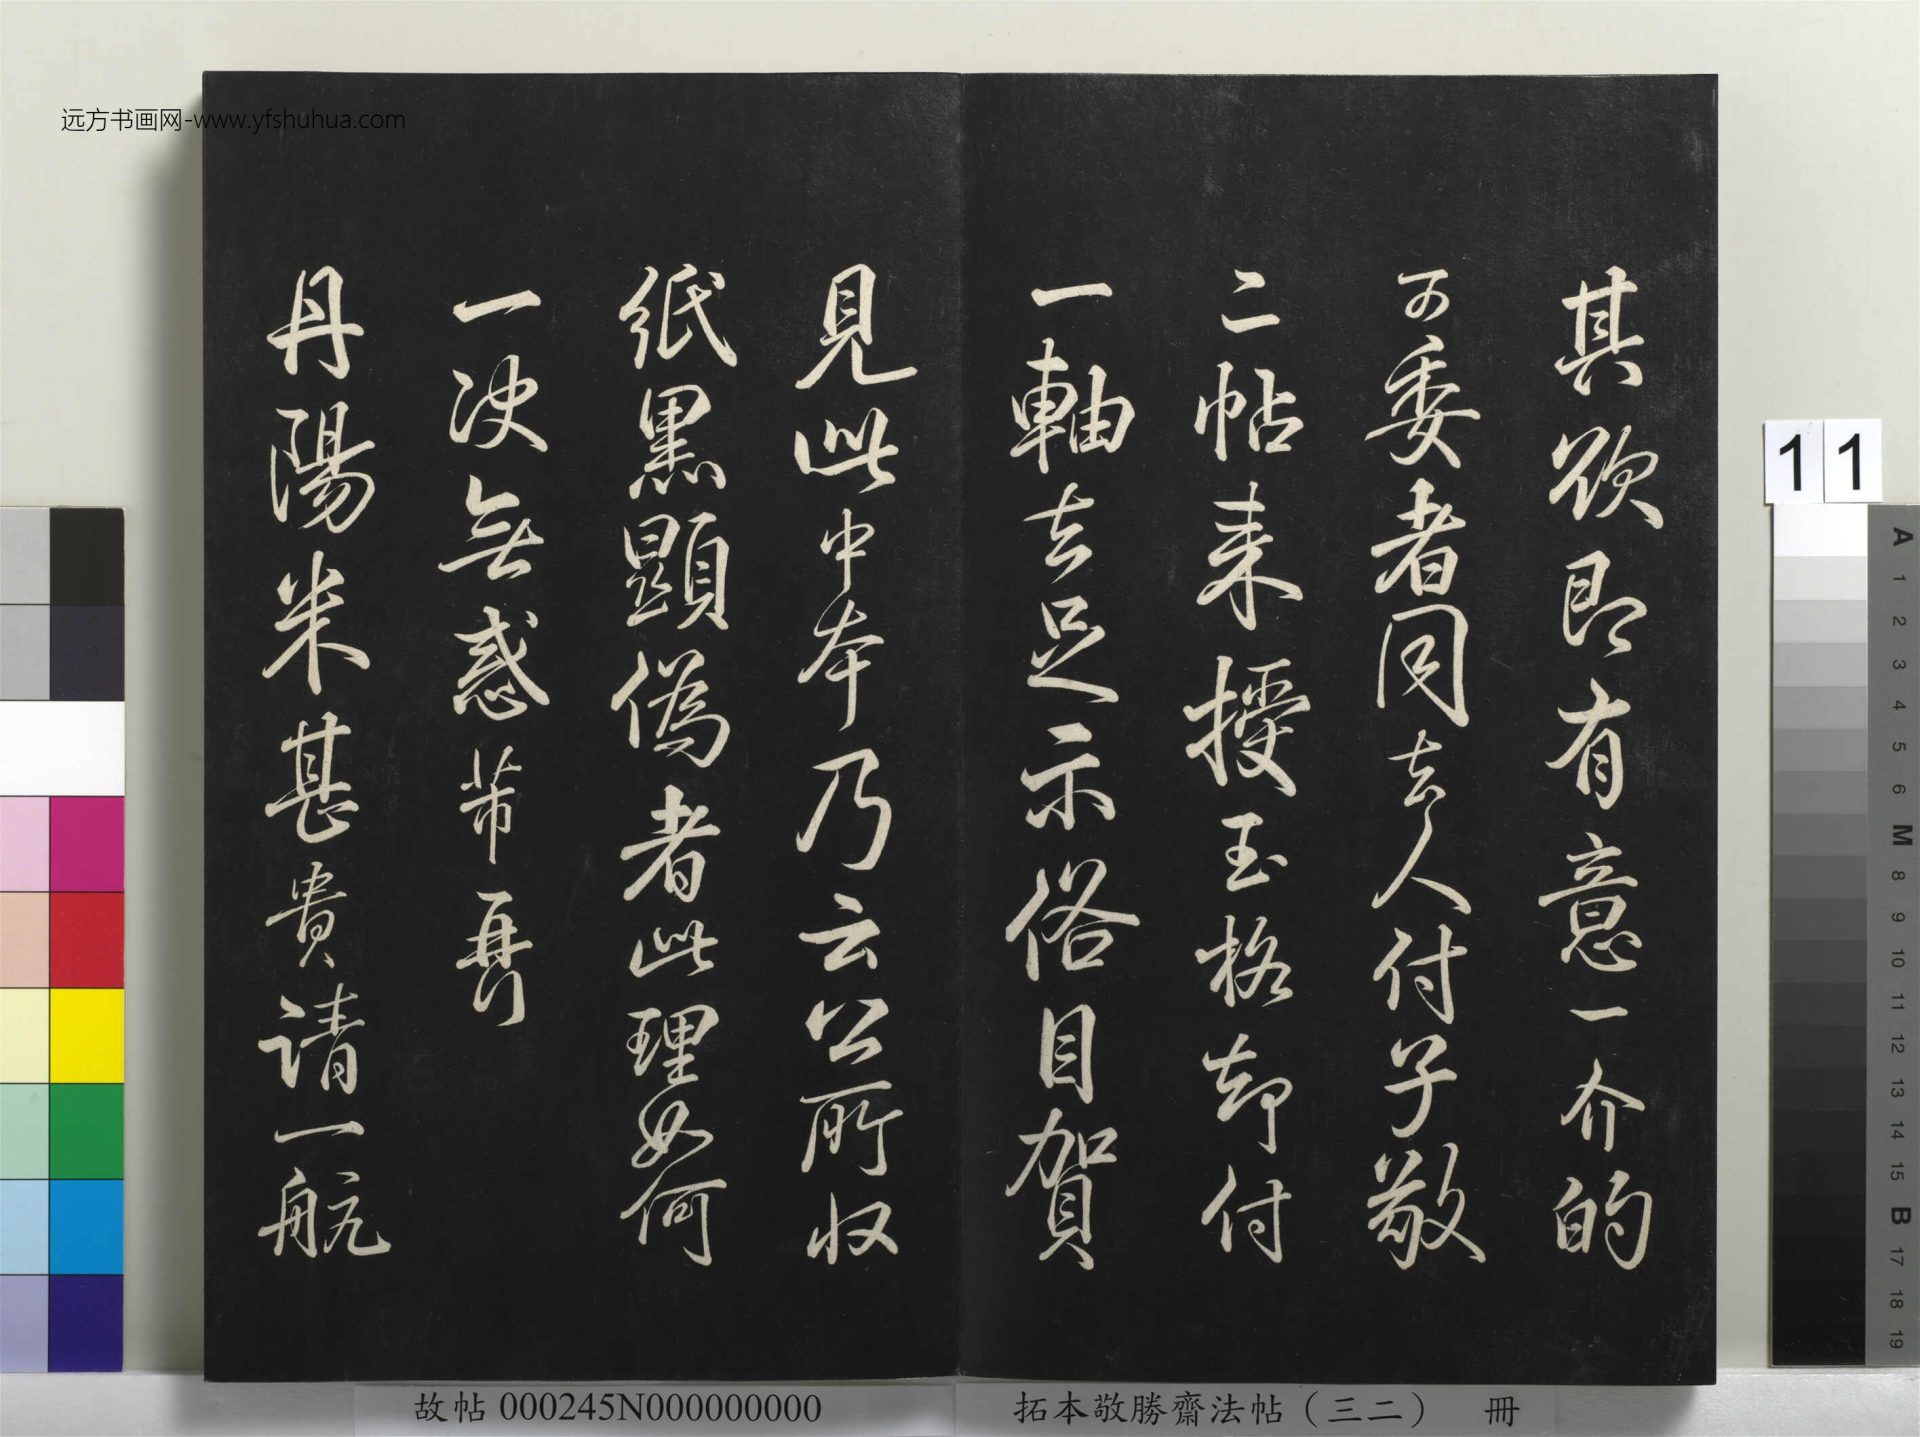 远方书画网-www.yfshuhua.com
其欲即有意一介的
可委者同去人付子敬
二帖来授玉格却付
一軸去足示俗目賀
見此中本乃云公所収
紙黒顕偽者此理如何
一决無惑芾再
丹陽米甚貴請一航
11
A
1
2
3
4
5
6
M
8
9
10
11
12
13
14
15
B
17
18
19
故帖000245N000000000
拓本敬勝齋法帖（三二） 冊